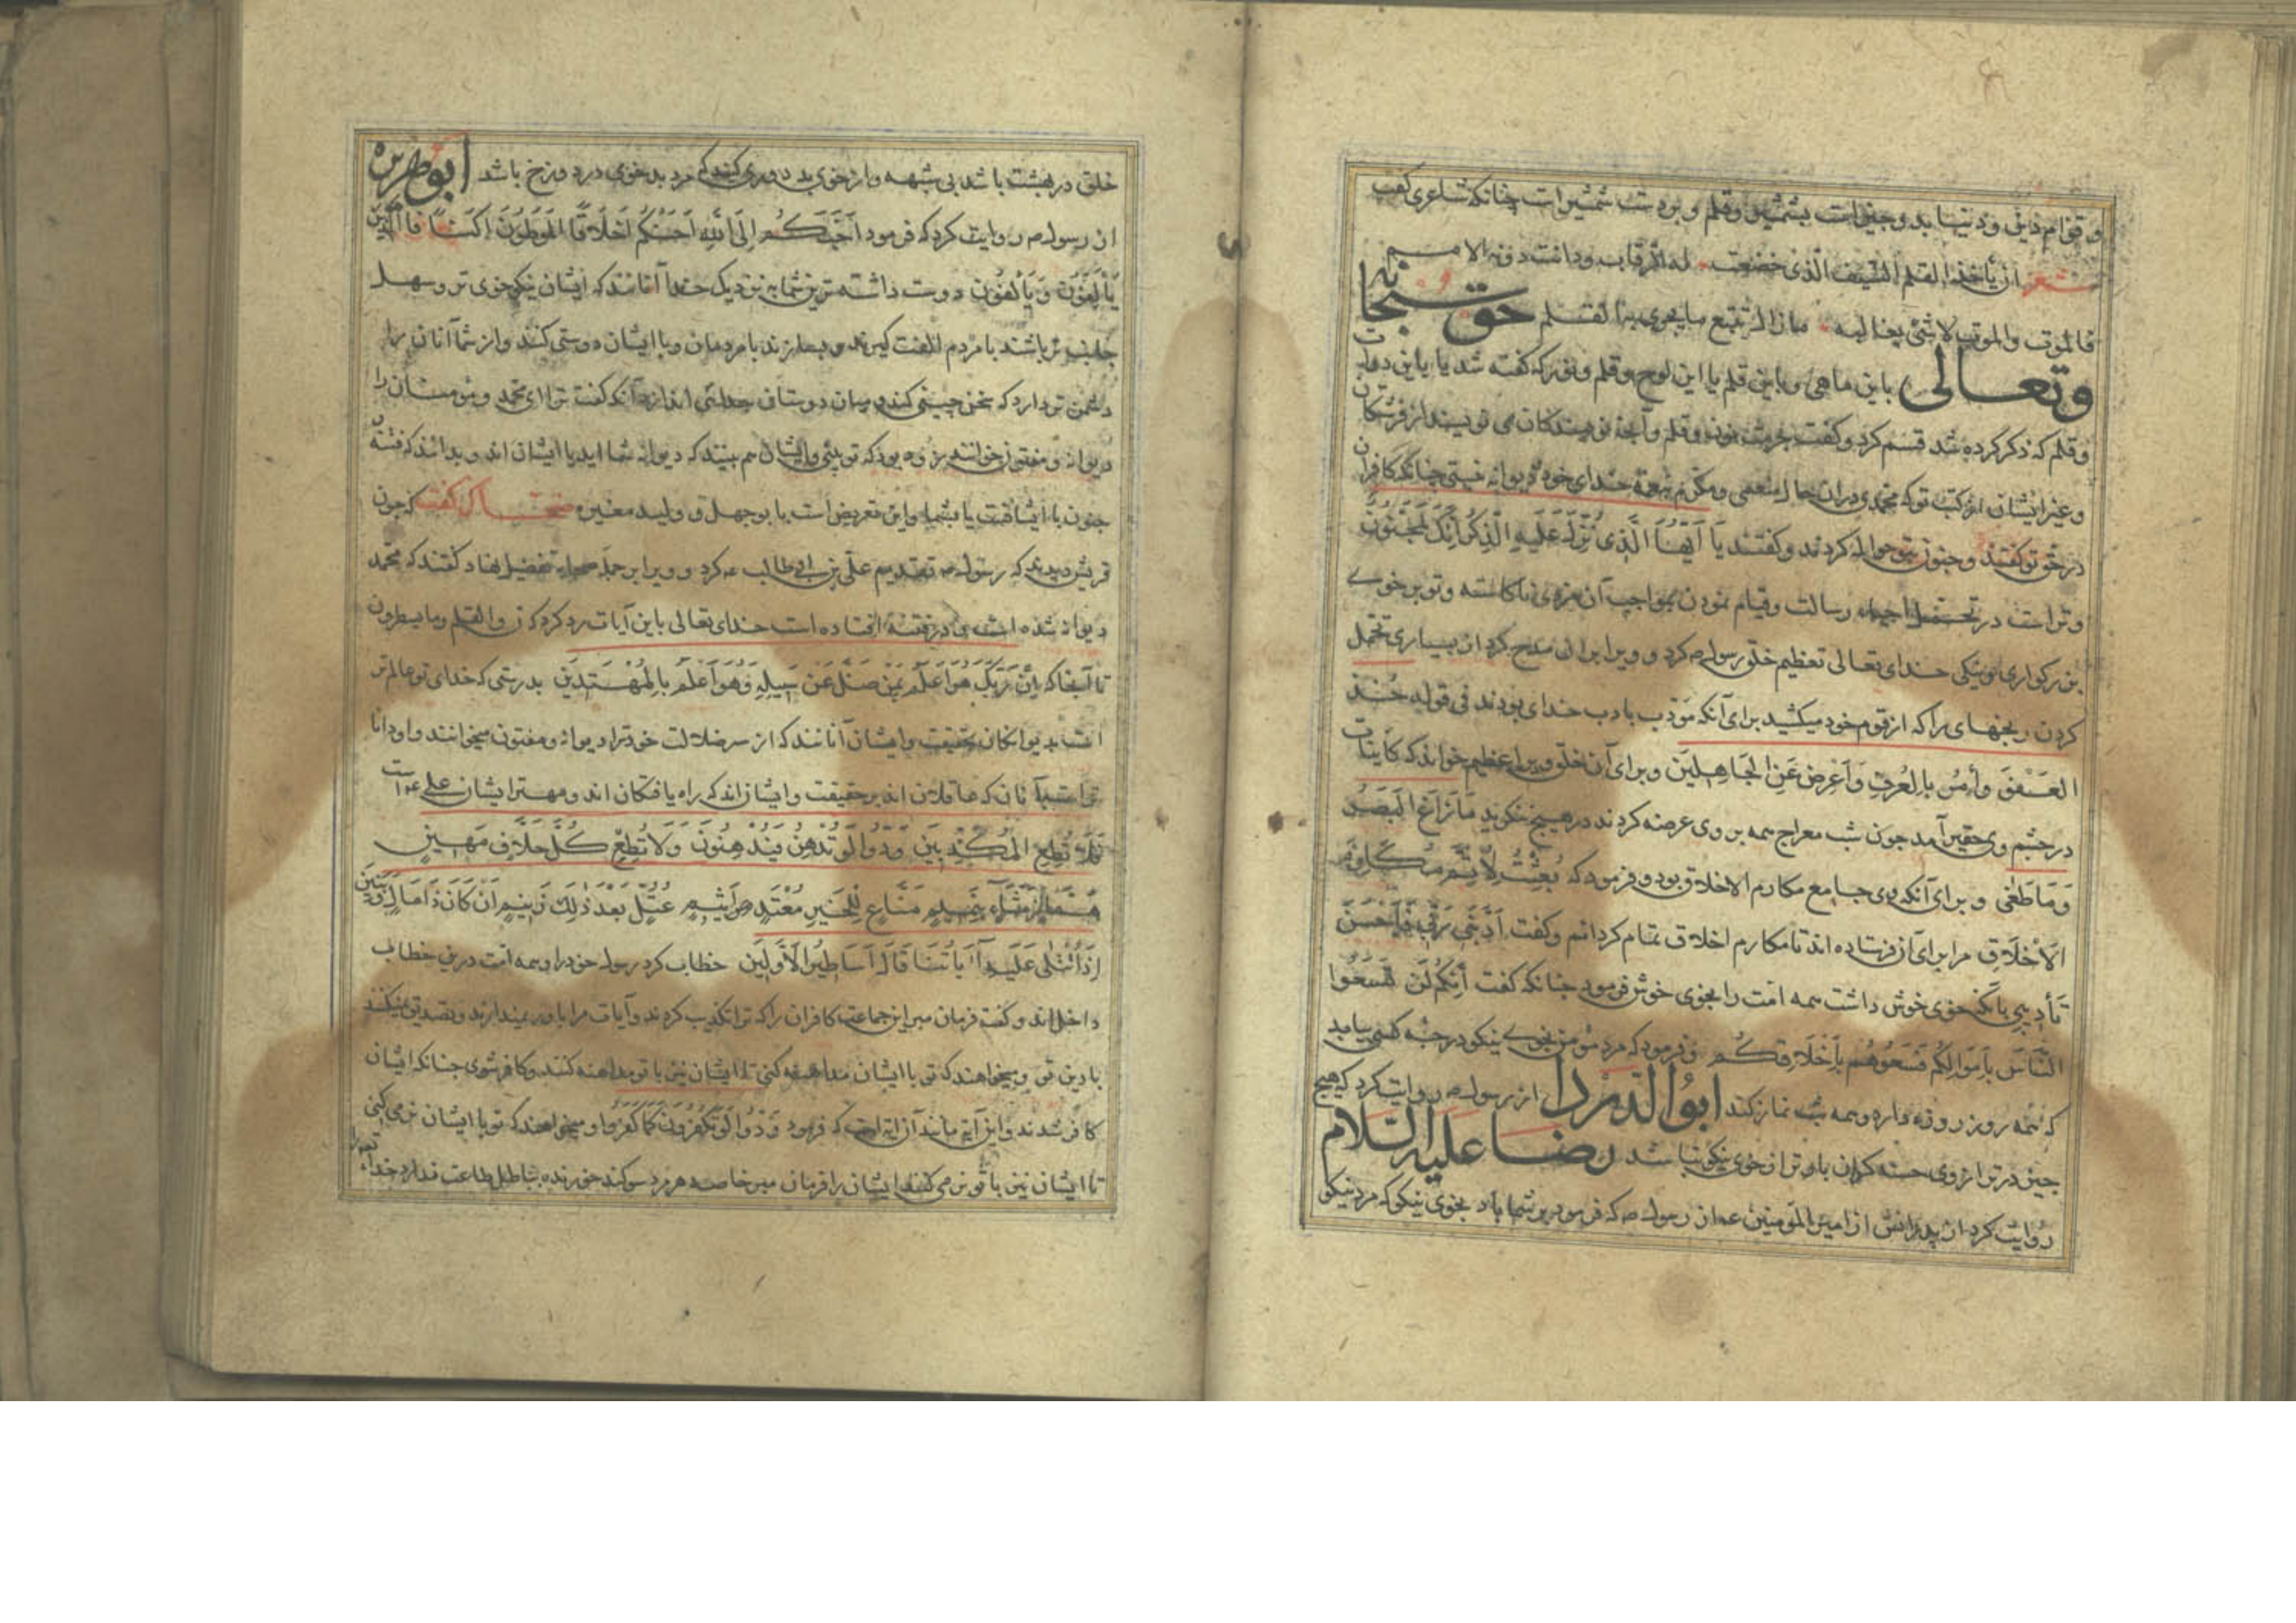 و قوام دین و دنیا بدو چیز است بشمشیر و قلم و بر دست شمشیر است چنانکه شاعری گفت
شعر ان یأخذ القلم السیف الذی خضعت له الرقاب و دانت دونه الامم
فالموت والموت لا شئ یغالبه ما زال یتبع ما یجری به القلم حق سبحانه
وتعالی باین ماهی و باین قلم یا این لوح و قلم و نور که گفته شد یا باین دوات
و قلم که ذکر کرده شد قسم کرد و گفت بحرمت نون و قلم و آنچه نویسندکان می نویسند از فرشتکان
و غیر ایشان از کتب تو که محمدی در ان حال منعمی و مکرم بنعمة خدای خود دیوانه نیستی چنانکه کافران
در حق تو گفتند و جنون بتو حواله کردند و گفتند یَا اَیُّهَا الَّذِی نُزِّلَ عَلَیهِ الَّذِکرُ اِنَّکَ لَمَجنُونٌ
و تراست در تحمل اعباء رسالت و قیام نمودن بمواجب آن مزدی ناکاسته و تو بر خوی
بزرکواری نیکی خدای تعالی تعظیم خلق رسول ص کرد و ویرا بر این مدح کرد از بسیاری تحمل
کردن رنجهای را که از قوم خود میکشید برای آنکه مؤدب بادب خدای بودند فی قوله خُذِ
العَفْوَ وَأمُر بِالعُرفِ وَاَعرِض عَنِ الجَاهِلِینَ و برای آن خلق ویرا عظیم خواند که کاینات
در چشم وی حقیر آمد چون شب معراج همه بر وی عرضه کردند در هیچ ننکرید مَا زَاغَ البَصَرُ
وَمَا طَغٰی و برای آنکه وی جامع مکارم الاخلاق بود و فرمود که بُعِثتُ لِاُتَمِّمَ مَکَارِمَ
الاَخْلَاقِ مرا برای آن فرستاده اند تا مکارم اخلاق تمام کردانم و گفت اَدَّبَنِی رَبِّی فَاَحْسَنَ
تَأدِیبِی بانکه خوی خوش داشت همه امت را بخوی خوش فرمود چنانکه گفت اِنَّکُم لَن تَسَعُوا
النَّاسَ بِاَموَالِکُم فَسَعُوهُم بِاَخْلَاقِکُم و فرمود که مرد مؤمن بخوی نیکو درجه کسی بیابد
که همه روز روزه دارد و همه شب نماز کند ابو الدردا از رسول ص روایت کرد که هیچ
چیز در ترازوی حسنه کران بارتر از خوی نیکو نباشد رضا علیه السلام
روایت کرد از پدرانش از امیر المؤمنین ع از رسول ص که فرمود بر شما باد بخوی نیکو که مرد نیکو
خلق در بهشت باشد بی شبهه و از خوی بد دوری کنند که مرد بد خوی در دوزخ باشد ابو هریره
از رسول ص روایت کرد که فرمود اَحَبُّکُم اِلَی اللهِ اَحسَنُکُم اَخلَاقًا المُوَطِّؤُنَ اَکنَافًا الَّذِینَ
یَألَفُونَ وَ یُؤلَفُونَ دوست داشته ترین شما به نزدیک خدا آنانند که ایشان نیکو خوی تر و سهل
جانب تر باشند با مردم الفت کیرند و بسازند با مردمان و با ایشان دوستی کنند و از شما آنان را
دشمن تر دارد که سخن چینی کند و میان دوستان جدائی اندازد آنکه گفت ترا ای محمد و مؤمنان را
دیوانه و مفتون خوانند زود بود که تو بینی و ایشان هم بینند که دیوانه شما اید یا ایشان اند و بدانند که فتنه
جنون با ایشانست یا بشما و این تعریض است با بو جهل و ولید مغیره ضحاک گفت که چون
قریش دیدند که رسول ص تقدیم علی بن ابی طالب ع کرد و ویرا بر جمله صحابه تفضیل نهاد گفتند که محمد
دیوانه شده است و در فتنه افتاده است خدای تعالی باین آیات رد کرد که ن والقلم وما یسطرون
تا آنجا که اِنَّ رَبَّکَ هُوَ اَعلَمُ بِمَن ضَلَّ عَن سَبِیلِهِ وَهُوَ اَعلَمُ بِالمُهْتَدِینَ بدرستی که خدای تو عالمتر
است بدیوانکان بحقیقت و ایشان آنانند که از سر ضلالت خود ترا دیوانه و مفتون میخوانند و او دانا
تر است بآنان که عاقلان اند بر حقیقت و ایشان اند که راه یافتکان اند و مهتر ایشان علی ع است
فَلَا تُطِعِ المُکَذِّبِینَ وَدُّوا لَو تُدهِنُ فَیُدهِنُونَ وَلَا تُطِع کُلَّ حَلَّافٍ مَهِینٍ
هَمَّازٍ مَشَّاءٍ بِنَمِیمٍ مَنَّاعٍ لِلْخَیرِ مُعْتَدٍ اَثِیمٍ عُتُلٍّ بَعدَ ذٰلِکَ زَنِیمٍ اَن کَانَ ذَا مَالٍ وَبَنِینَ
اِذَا تُتلٰی عَلَیهِ آیَاتُنَا قَالَ اَسَاطِیرُ الاَوَّلِینَ خطاب کرد رسول خود را و همه امت درین خطاب
داخل اند و گفت فرمان مبر این جماعت کافران را که ترا تکذیب کردند و آیات مرا باور نمیدارند و تصدیق نمیکنند
با دین تو و میخواهند که تو با ایشان مداهنه کنی تا ایشان نیز با تو مداهنه کنند و کافر شوی چنانکه ایشان
کافر شدند و این آیه مانند آن آیه است که فرمود وَدُّوا لَو تَکفُرُونَ کَمَا کَفَرُوا و میخواهند که تو با ایشان نرمی کنی
تا ایشان نیز با تو نرمی کنند ایشان را فرمان مبر خاصه هر مرد سوکند خورنده بباطل طاعت ندارد خدا را